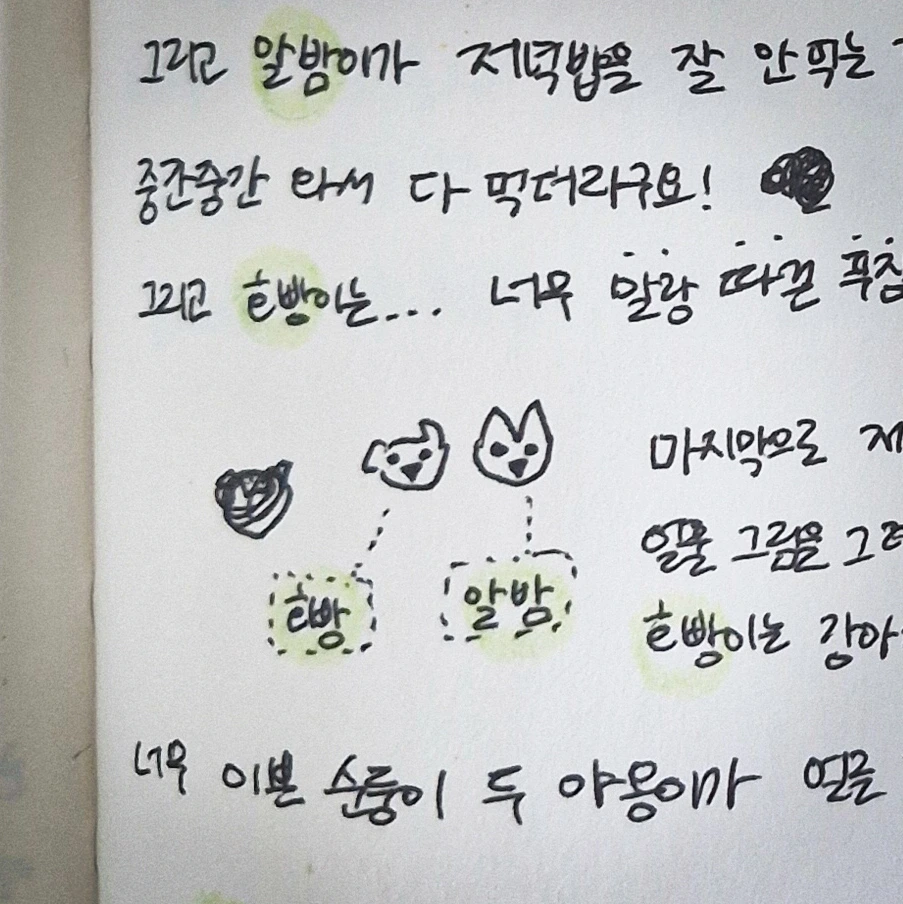 그리고 알밤이가 저녁밥을 잘 안먹는
중간중간 와서 다 먹더라구요!
그리고 호빵이는... 너무 말랑 따끈 푹신
마지막으로 제
얼굴 그림을 그려
호빵 알밤
호빵이는 강아
너무 이쁜 순둥이 두 야옹이가 얼굴